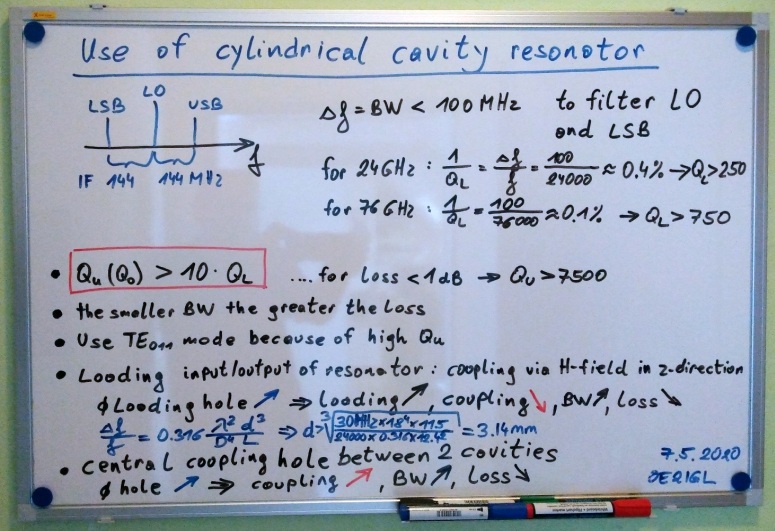 Use of cylindrical cavity resonator
LSB LO USB
f
IF 144 144 MHz
Δf = BW < 100 MHz to filter LO
and LSB
for 24GHz : 1/QL = Δf/f = 100/24000 ≈ 0.4% → QL>250
for 76GHz : 1/QL = 100/76000 ≈ 0.1% → QL>750
• Qu (Q0) > 10 · QL .... for loss < 1dB → QU>7500
• the smaller BW the greater the loss
• Use TE011 mode because of high Qu
• Loading input/output of resonator : coupling via H-field in z-direction
ϕ Loading hole ↗ ⇒ loading ↗, coupling ↘, BW ↗, loss ↘
Δf/f = 0.316 λ² d³/D⁴ L ⇒ d> ³√ = 3.14mm
• central coupling hole between 2 cavities
ϕ hole ↗ ⇒ coupling ↗, BW ↗, Loss ↘
7.5.2020
OE2IGL